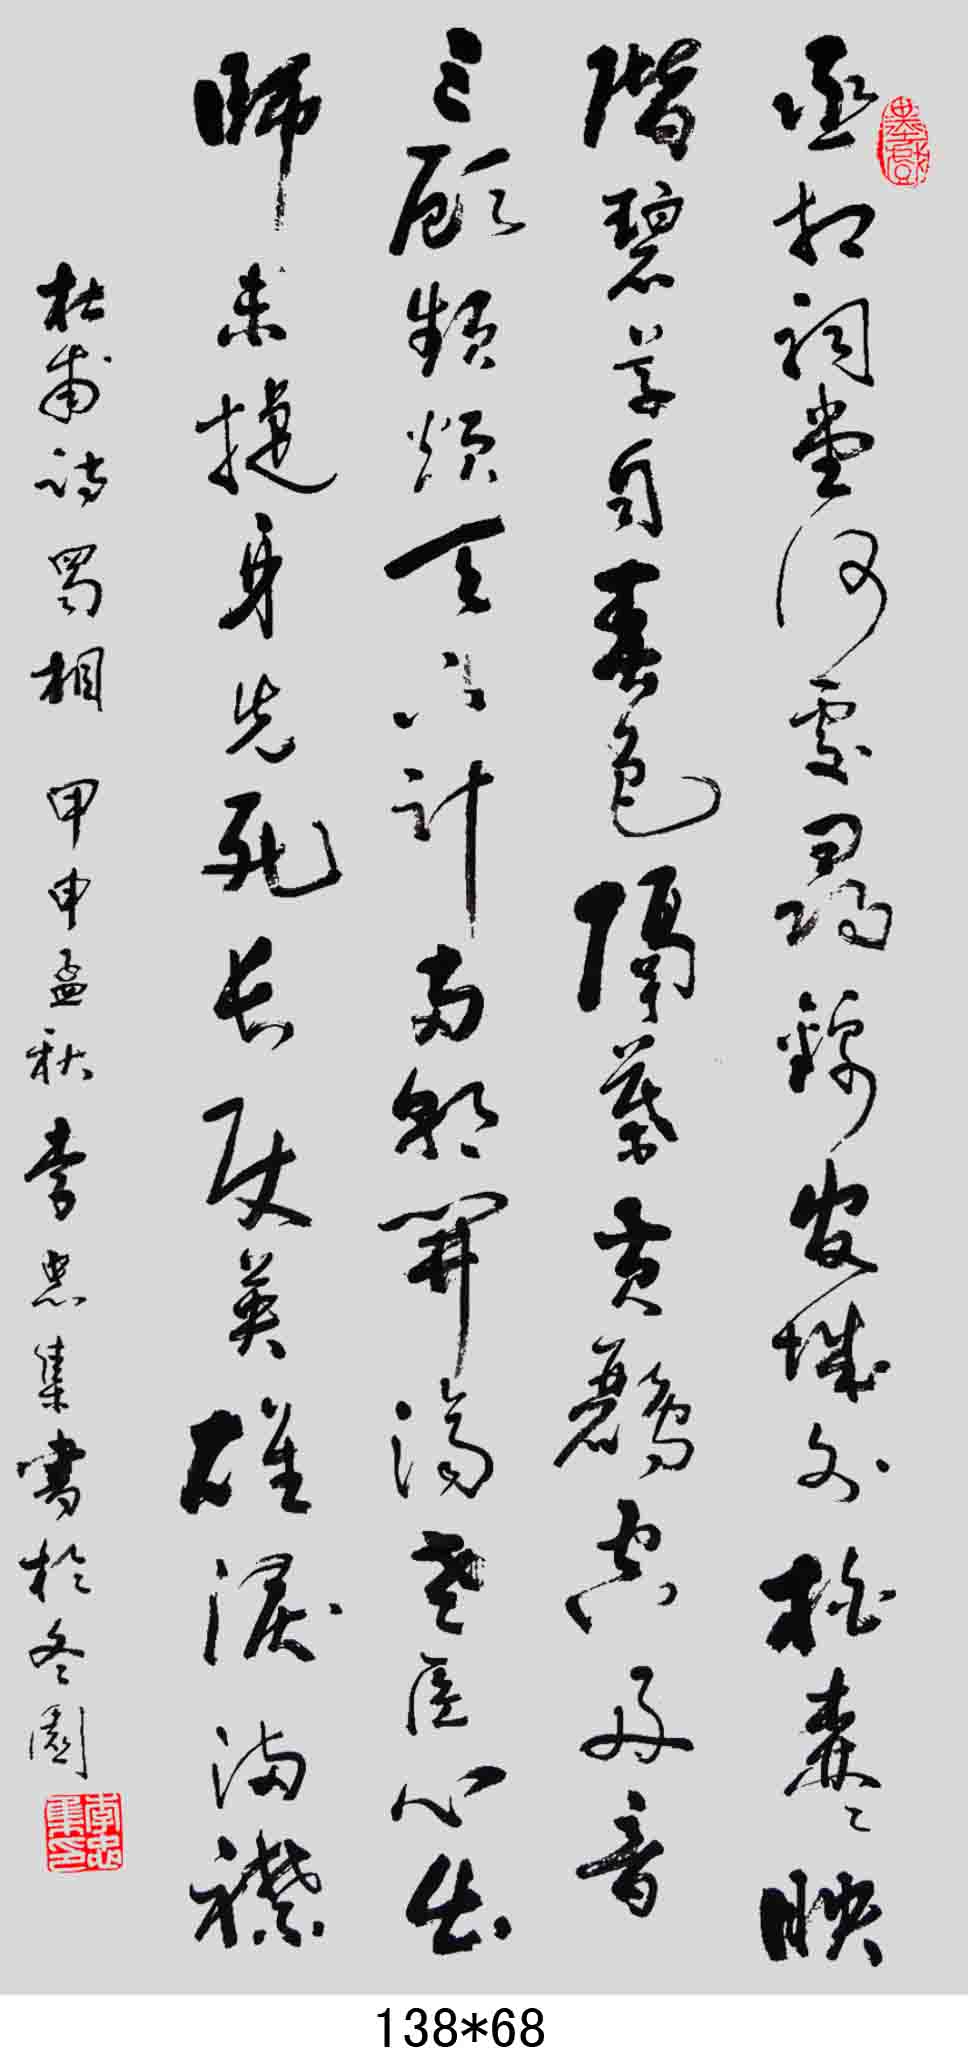 丞相祠堂何處尋錦官城外柏森々映
階碧草自春色隔葉黃鸝空好音
三顧頻煩天下計兩朝開濟老臣心出
師未捷身先死长使英雄淚滿襟
杜甫詩蜀相 甲申孟秋李忠集書於冬園
墨戲
李忠集印
138*68